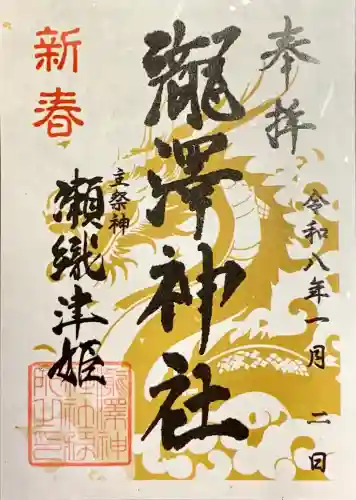 奉拝
令和八年一月 二日
瀧澤神社
主祭神
瀬織津姫
新春